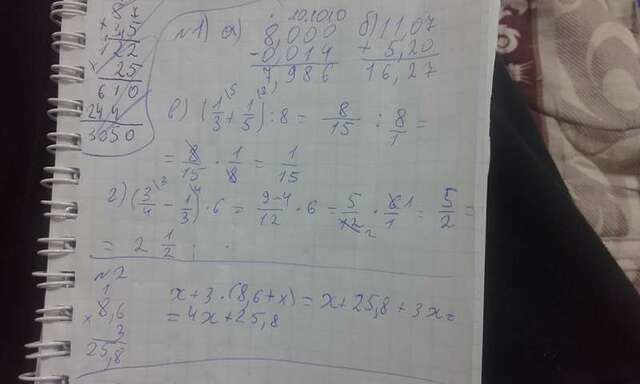 87
+ 35
122
× 25
610
244
3050
№1) а) 8,000
- 0,014
7,986
б) 11,07
+ 5,20
16,27
в) (1/3 + 1/5) : 8 = 8/15 : 8/1 =
= 8/15 · 1/8 = 1/15
г) (3/4 - 1/3) · 6 = 9-4/12 · 6 = 5/12 · 6/1 = 5/2 =
= 2 1/2 ;
№2
8,6
× 3
25,8
x + 3 · (8,6 + x) = x + 25,8 + 3x =
= 4x + 25,8